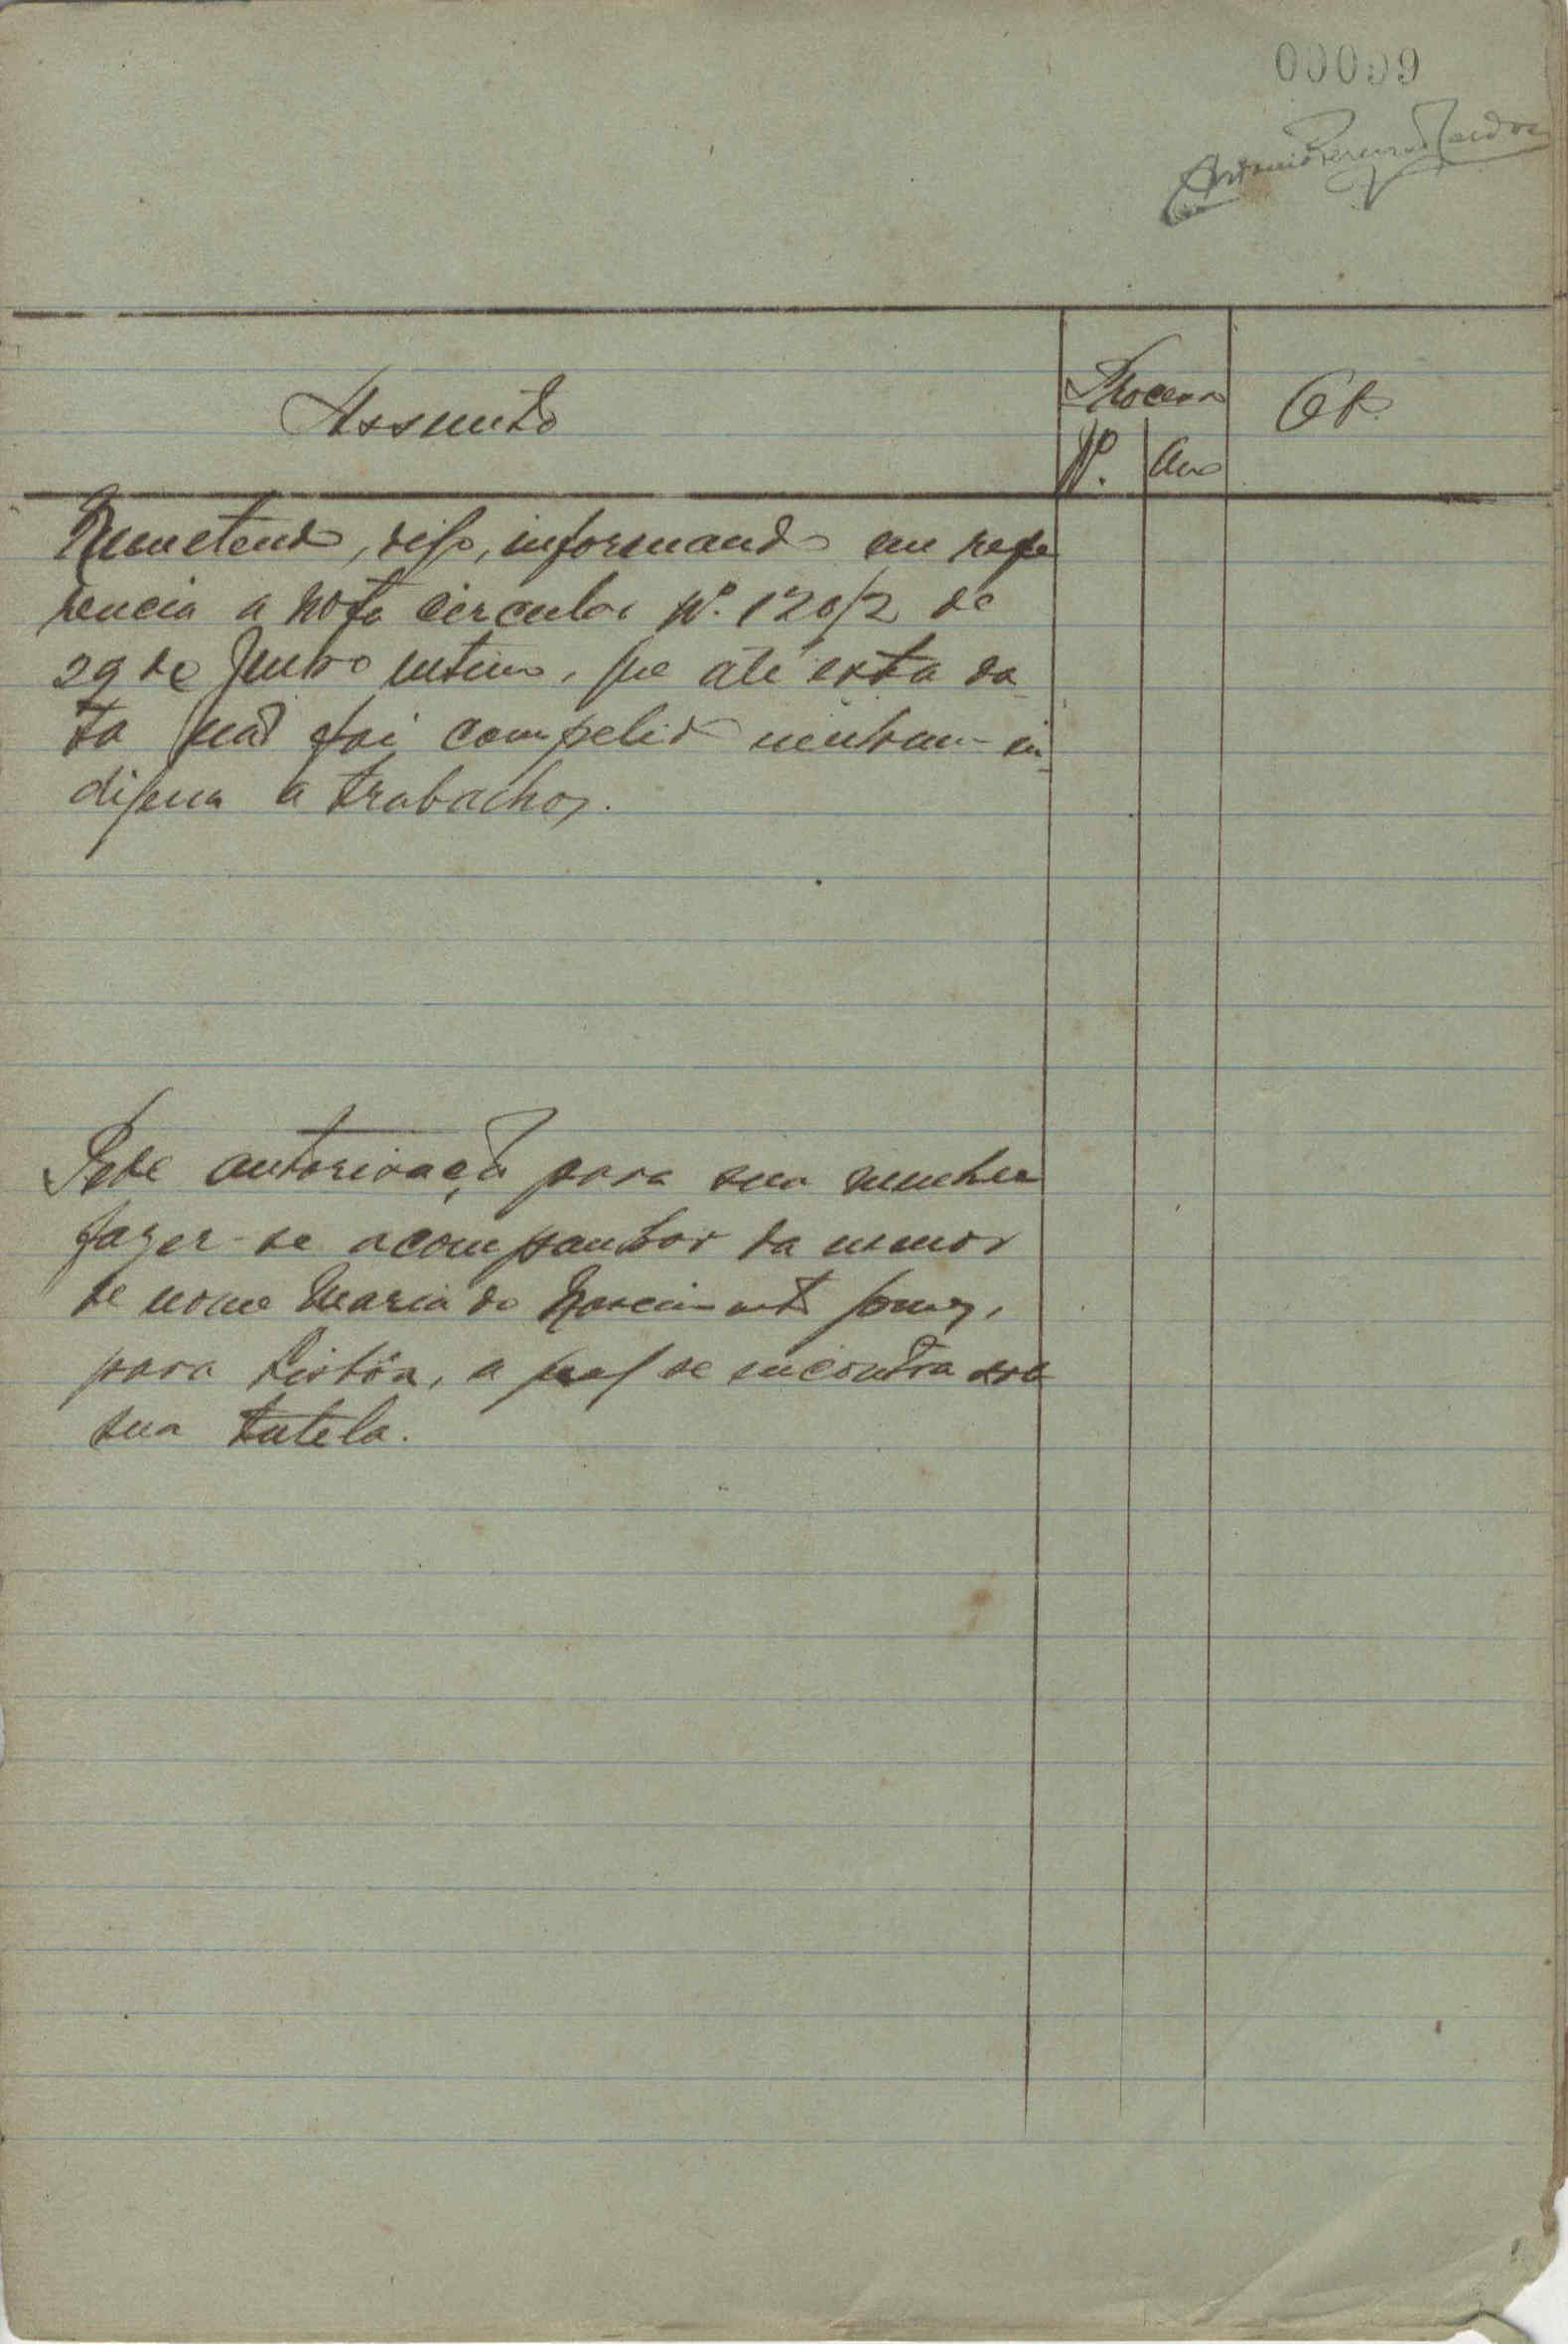 00099
Antonio Pereira Cardoso
Assunto
Processo
Nº. Ano
Ob.
Remetendo, digo, informando em refe
rencia a nota circular Nº. 120/2 de
29 de Junho ultimo, que até esta da
ta não foi compelido nenhum in
digena a trabachos.
Pede autorização para sua mulher
fazer-se acompanhar da menor
de nome Maria do Nascimento Gomes,
para Lisbôa, a qual se encontra sob
sua tutela.